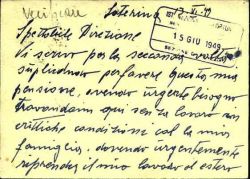 Laterina
15 GIU 1949
Spettabile Direzione
Vi scrivo per la seconda
suplicandovi per favore questa mia
pensione, avendo urgente bisogno
trovandomi qui senza lavoro con
critiche condizioni col la mia
famiglia. dovendo urgentemente
riprendere il mio lavoro al estero